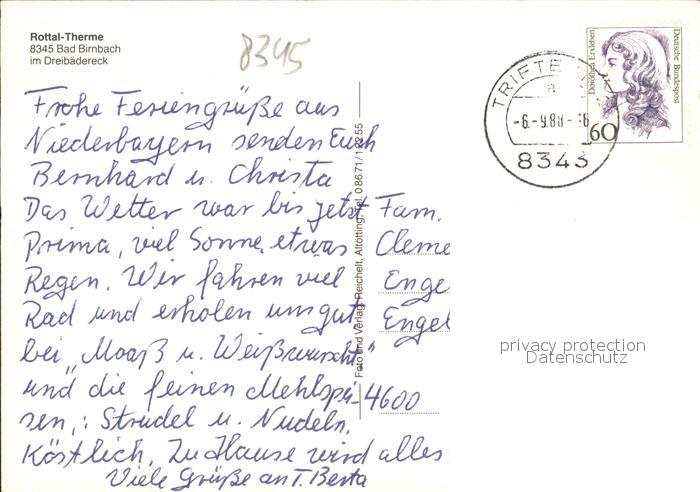 Rottal-Therme
8345 Bad Birnbach
im Dreibädereck
8345
TRIFTE
a
-6.-9.88-16
8343
Dorothea Erxleben
Deutsche Bundespost
60
Frohe Feriengrüße aus
Niederbayern senden Euch
Bernhard u. Christa
Das Wetter war bis jetzt
Prima, viel Sonne, etwas
Regen. Wir fahren viel
Rad und erholen uns gut
bei „Moaß u. Weißwurscht"
und die feinen Mehlspei-
sen,: Strudel u. Nudeln.
Köstlich. Zu Hause wird alles
Viele Grüße an T. Berta
Foto und Verlag Reichelt, Altötting, Tel. 08671/
Fam.
Cleme
Enge
Engel
4600
privacy protection
Datenschutz